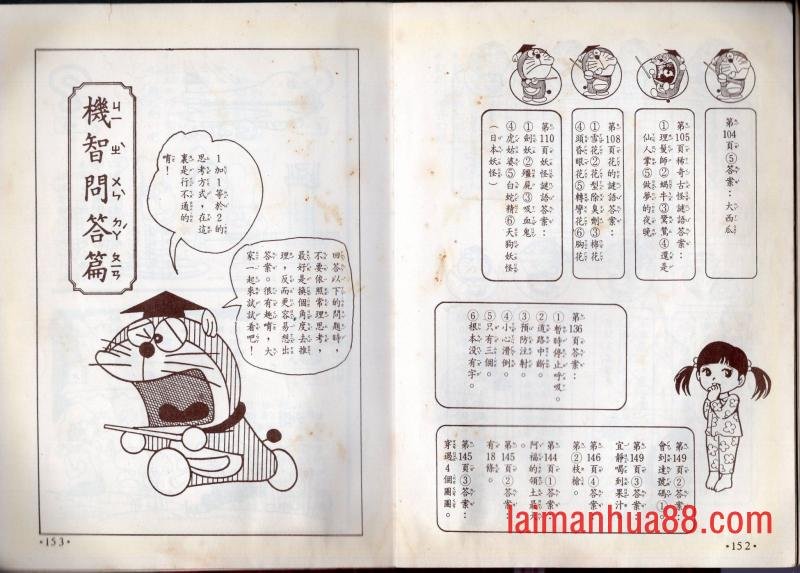 第104頁⑤答案：大西瓜
第105頁稀奇古怪謎語答案：
①理髮師②蝸牛③鴛鴦④還是
仙人掌⑤做夢的夜晚
第108頁花的謎語答案：
①雪花②花型除臭劑③棉花
④頭昏眼花⑤轉彎花⑥胸花
第110頁妖怪謎語答案：
①劍妖②殭屍③吸血鬼
④虎姑婆⑤白蛇精⑥天狗妖怪
(日本妖怪)
第136頁答案：
①暫時停止呼吸。
②道路中斷。
③預防注射。
④小心滑倒。
⑤只有三個。
⑥根本没有字。
第149頁②答案：
會到達號碼①。
第149頁③答案：
宜靜喝到果汁
第146頁④答案：
第②枝槍。
第144頁①答案：
阿福的領土最大
第145頁②答案：
有18條。
第145頁③答案：
穿過4個圈圈。
laimanhua88.com
·152·
回答以下的問題時，
不要依照常理思考，
最好是換個角度去推
理，反而更容易想出
答案。很有趣唷，大
家一起來試試看吧！
1加1等於2的
思考方式，在這
裏是行不通的
唷！
機智問答篇
·153·